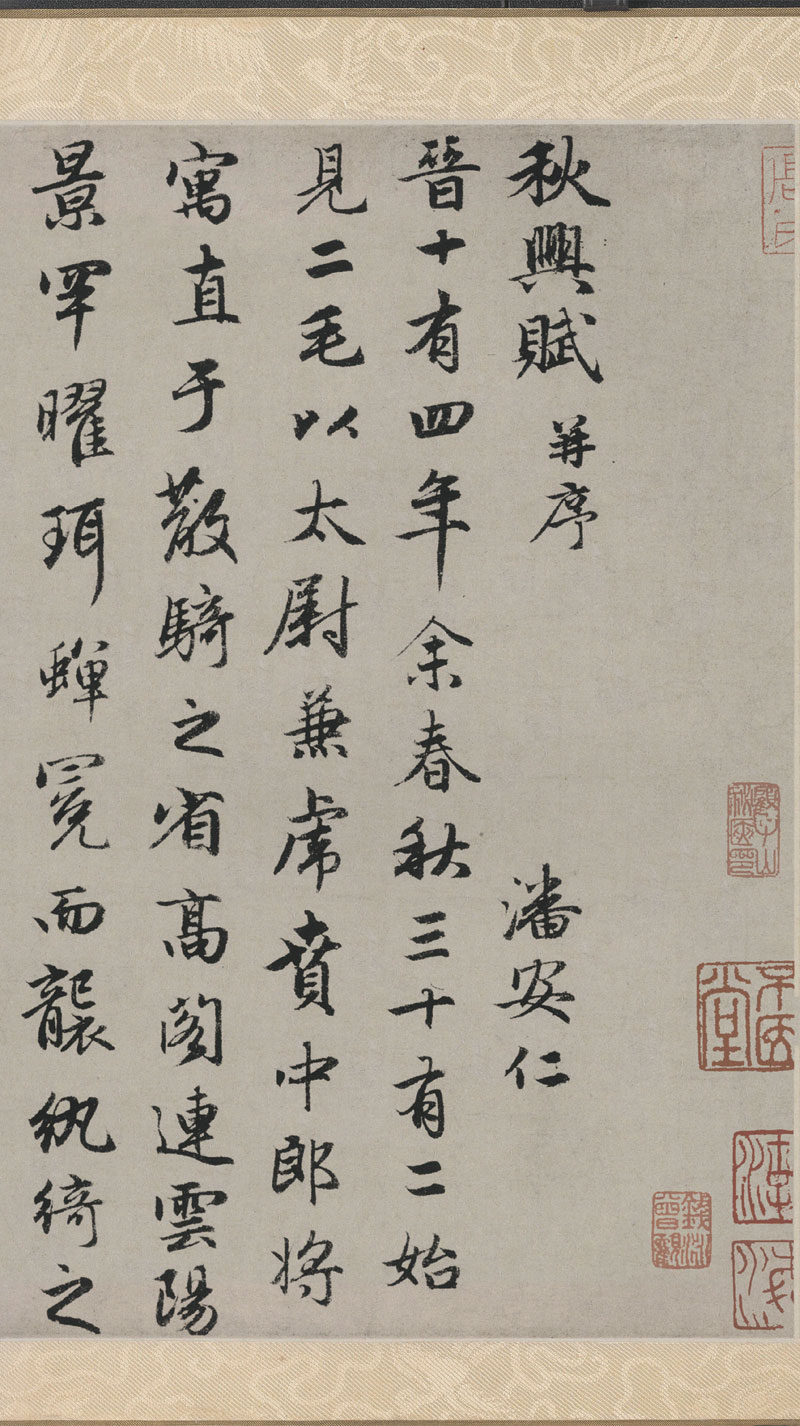 秋興賦 并序 潘安仁
晉十有四年余春秋三十有二始
見二毛以太尉兼虎賁中郎將
寓直于散騎之省高閣連雲陽
景罕曜珥蟬冕而襲紈綺之